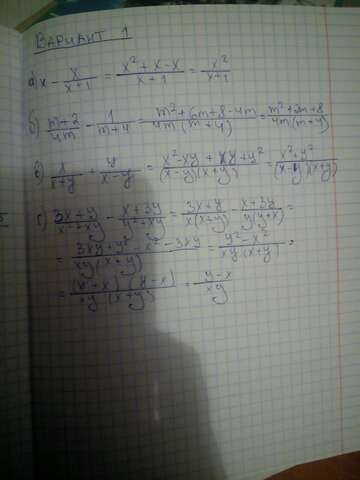 Вариант 1
а) x - x/(x+1) = (x²+x-x)/(x+1) = x²/(x+1)
б) (m+2)/4m - 1/(m+4) = (m²+6m+8-4m)/(4m(m+4)) = (m²+2m+8)/(4m(m+4))
в) x/(x+y) + y/(x-y) = (x²-xy+xy+y²)/((x-y)(x+y)) = (x²+y²)/((x-y)(x+y))
г) (3x+y)/(x²+xy) - (x+3y)/(y²+xy) = (3x+y)/(x(x+y)) - (x+3y)/(y(y+x)) =
= (3xy+y²-x²-3xy)/(xy(x+y)) = (y²-x²)/(xy(x+y)) =
= ((y+x)(y-x))/(xy(x+y)) = (y-x)/xy